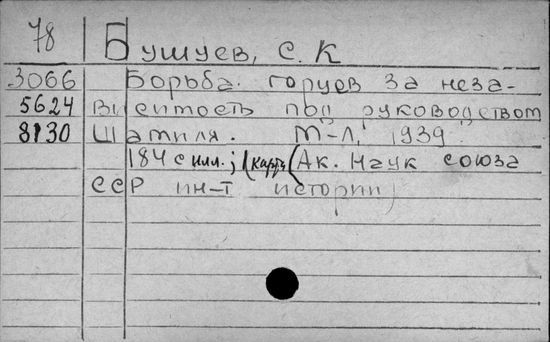 78 Бушуев, С. К
3066 Борьба горцев за неза-
5624 висимость под руководством
8130 Шамиля. М-Л, 1939.
184 с илл.; (карты (Ак. Наук союза
ССР ин-т истории)